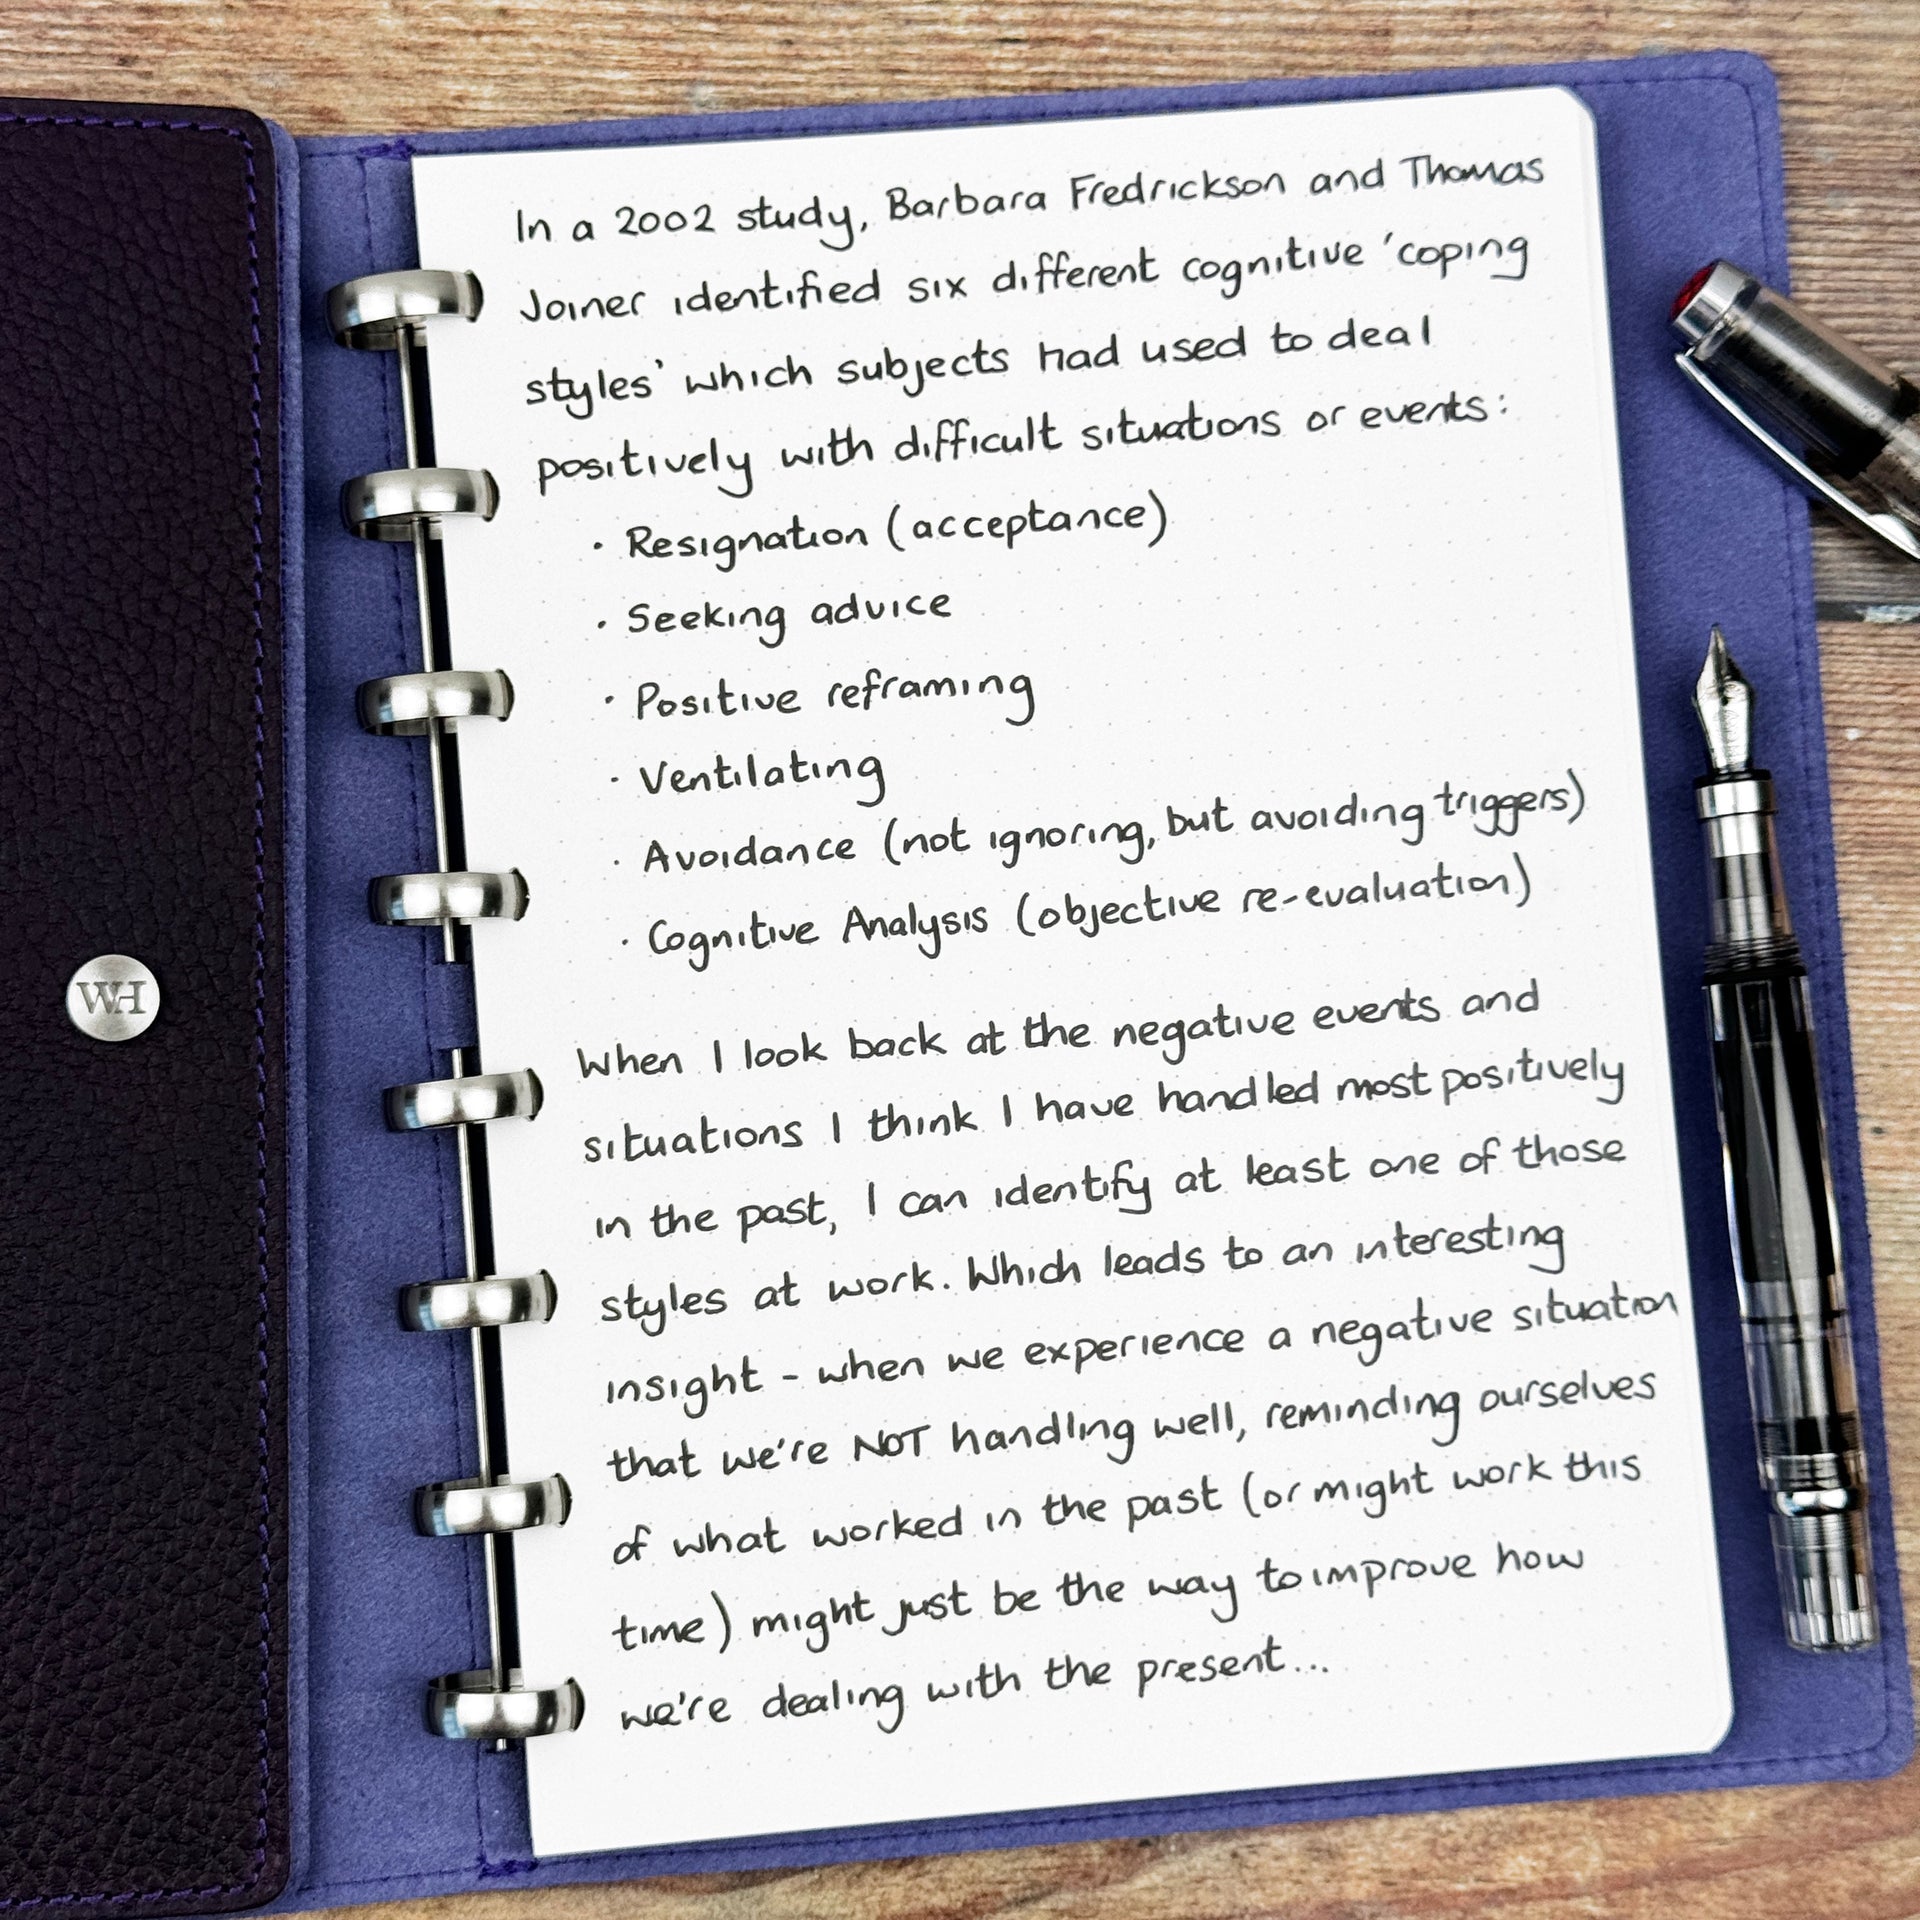 In a 2002 study, Barbara Fredrickson and Thomas
Joiner identified six different cognitive 'coping
styles' which subjects had used to deal
positively with difficult situations or events:
· Resignation (acceptance)
· Seeking advice
· Positive reframing
· Ventilating
· Avoidance (not ignoring, but avoiding triggers)
· Cognitive Analysis (objective re-evaluation)
When I look back at the negative events and
situations I think I have handled most positively
in the past, I can identify at least one of those
styles at work. Which leads to an interesting
insight - when we experience a negative situation
that we're NOT handling well, reminding ourselves
of what worked in the past (or might work this
time) might just be the way to improve how
we're dealing with the present...
WH